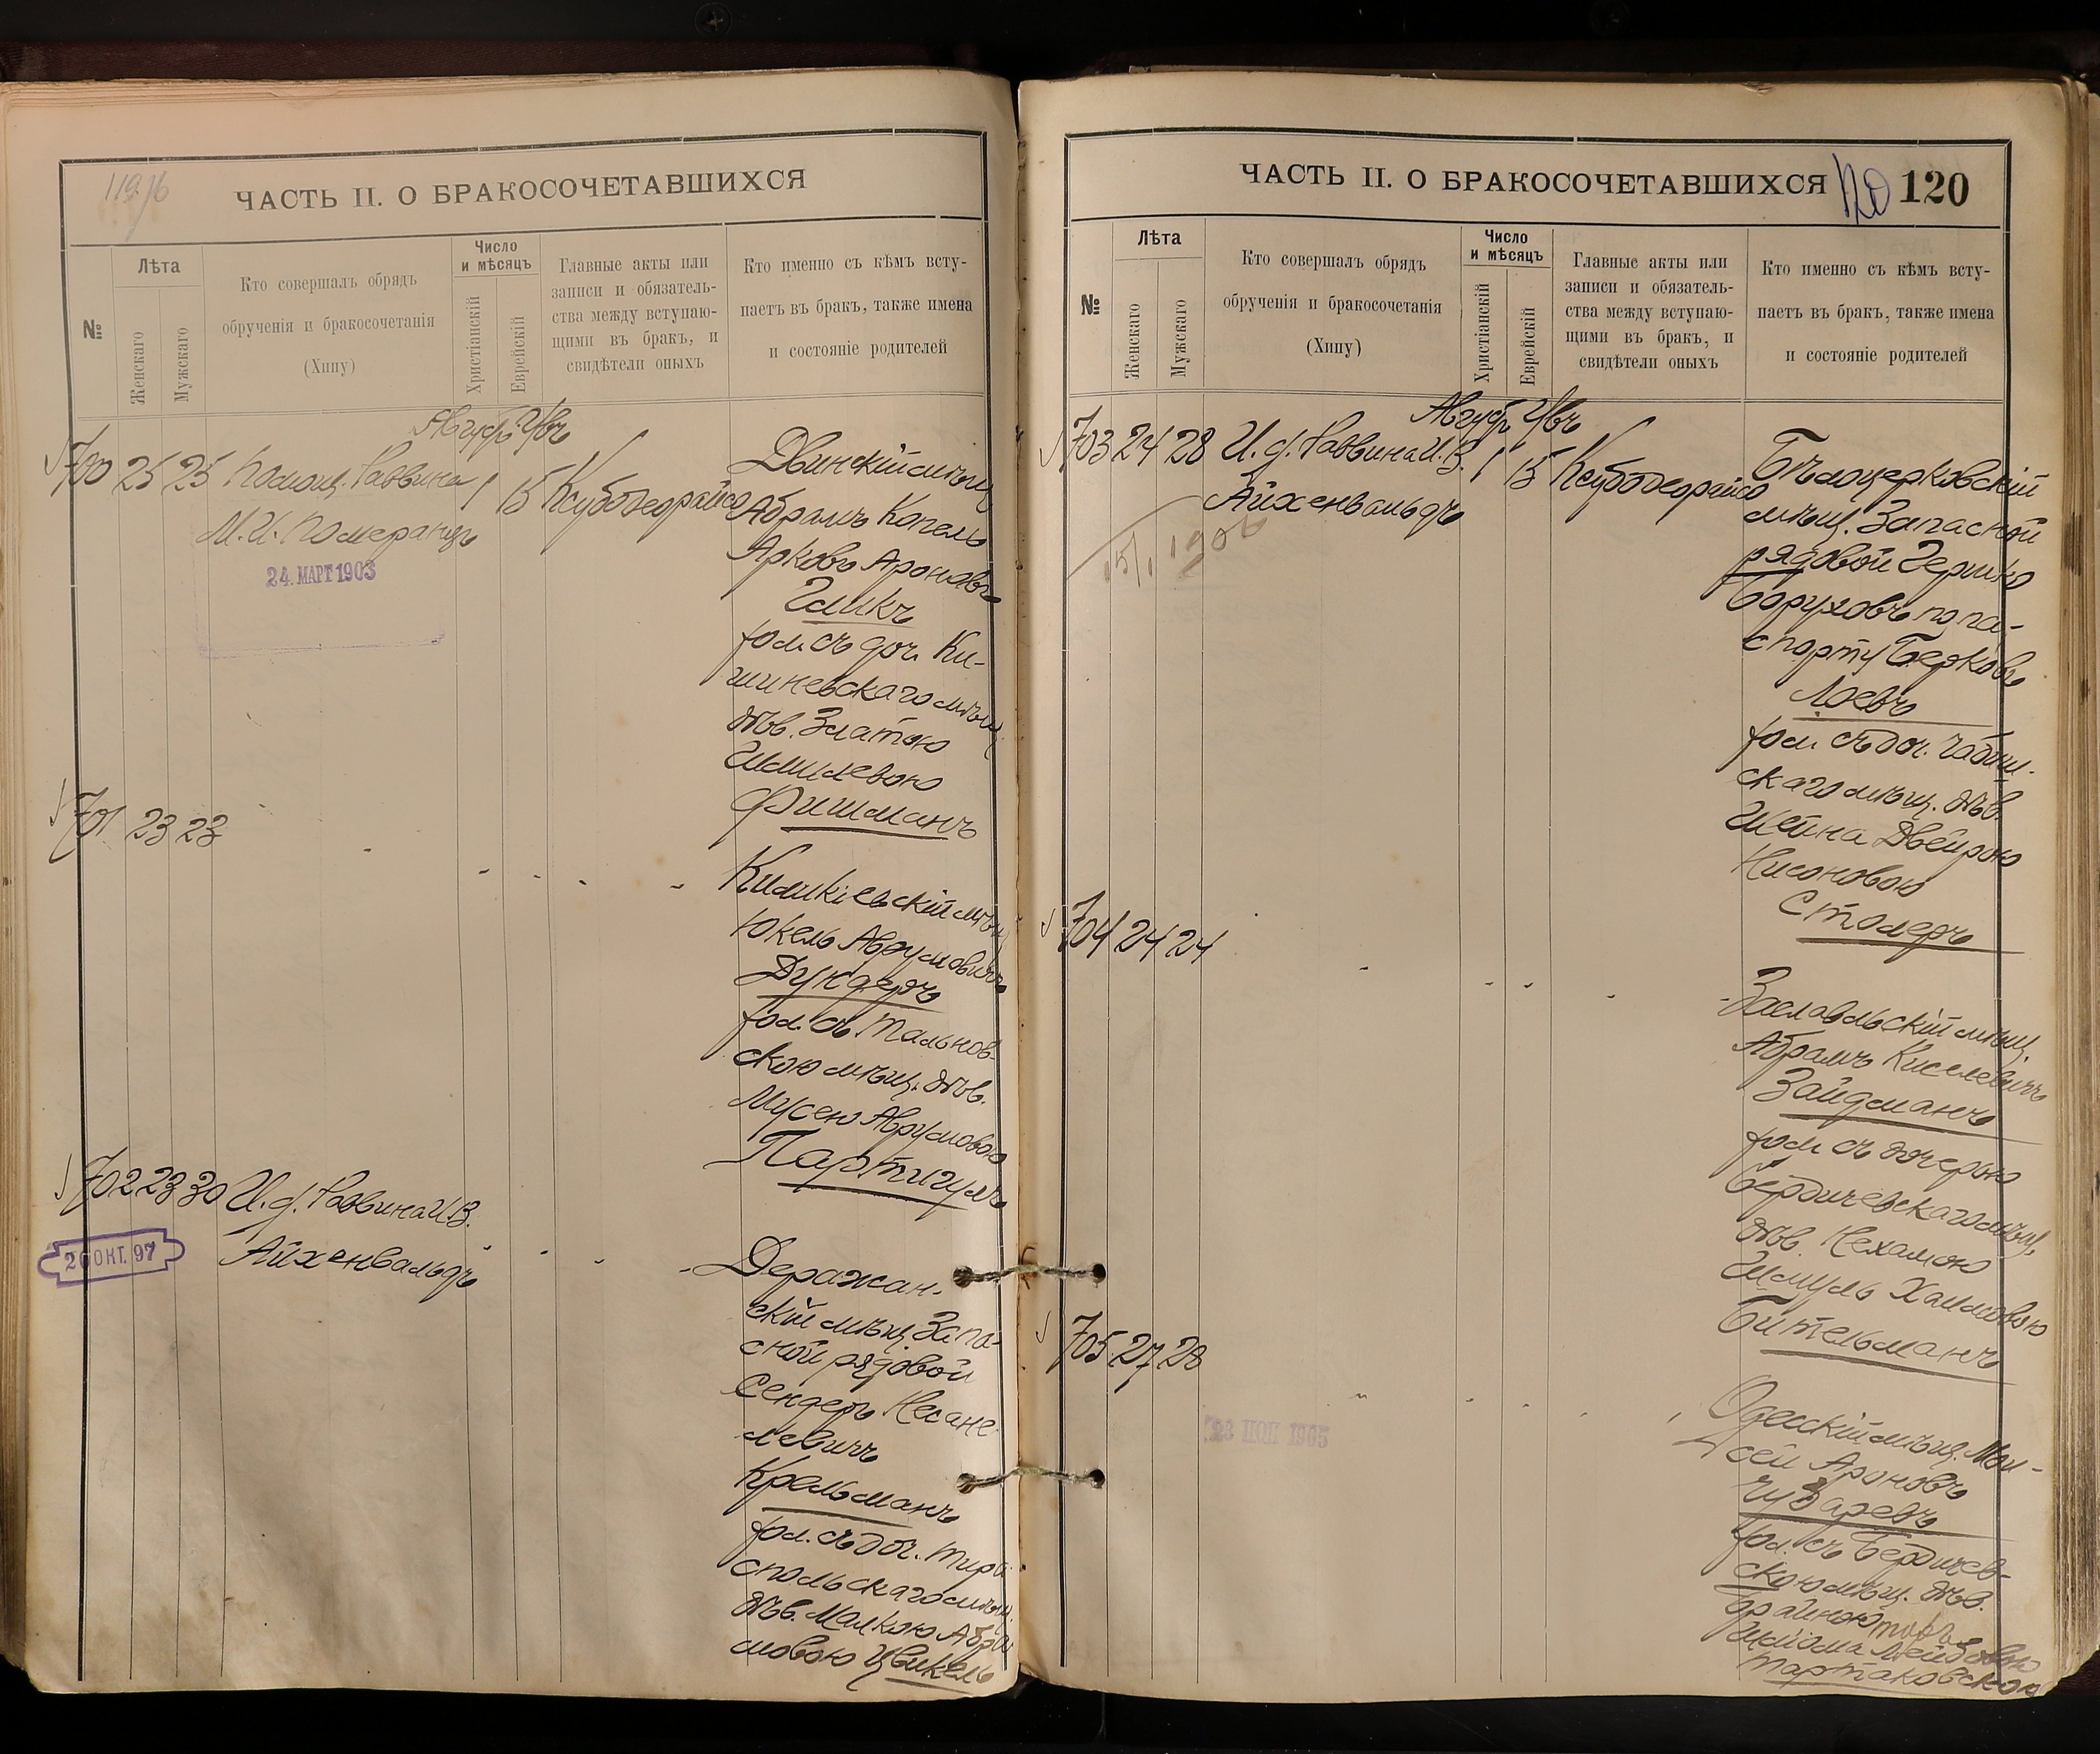 119 об
ЧАСТЬ II. О БРАКОСОЧЕТАВШИХСЯ
№
Лѣта
Женскаго
Мужскаго
Кто совершалъ обрядъ
обрученія и бракосочетанія
(Хипу)
Число
и мѣсяцъ
Христіанскій
Еврейскій
Главные акты или
записи и обязатель-
ства между вступаю-
щими въ бракъ, и
свидѣтели оныхъ
Кто именно съ кѣмъ всту-
паетъ въ бракъ, также имена
и состояніе родителей
700 25 25 Помощ. Раввина
М. И. Померанцъ
24. МАРТ 1903
1 15 Ксубодеорайсо
Двинскій мѣщ.
Абрамъ Копель
Арковъ Ароновъ
Гликъ
хол. съ доч. Ки-
шиневскаго мѣщ.
дѣв. Златою
Шмилевою
Фишманъ
701 23 23
Кимикіевскій мѣщ.
Юкель Аврумовичъ
Дукдеръ
хол. съ Тальнов-
скою мѣщ. дѣв.
Мусею Аврумовою
Партигулъ
702 23 30 И. д. Раввина И. В.
Айхенвальдъ
20 ОКТ. 97
Деражан-
скій мѣщ. Запа-
сной рядовой
Сендеръ Несане-
левичъ
Крельманъ
хол. съ доч. Тира-
спольскаго мѣщ.
дѣв. Малкою Абра-
мовою Цвикель
ЧАСТЬ II. О БРАКОСОЧЕТАВШИХСЯ
120 120
№
Лѣта
Женскаго
Мужскаго
Кто совершалъ обрядъ
обрученія и бракосочетанія
(Хипу)
Число
и мѣсяцъ
Христіанскій
Еврейскій
Главные акты или
записи и обязатель-
ства между вступаю-
щими въ бракъ, и
свидѣтели оныхъ
Кто именно съ кѣмъ всту-
паетъ въ бракъ, также имена
и состояніе родителей
703 24 28 И. д. Раввина И. В.
Айхенвальдъ
15/1 1906
1 15 Ксубодеорайсо
Бѣлоцерковскій
мѣщ. Запасной
рядовой Гершко
Боруховъ по па-
спорту Берковъ
Лоевъ
хол. съ доч.
скаго мѣщ. дѣв.
Шейна Двейрою
Нисоновою
Столеръ
704 24 24
Заславльскій мѣщ.
Абрамъ Киселевичъ
Зайдманъ
хол. съ дочерью
Бердичевскаго мѣщ.
дѣв. Нехамою
Шмуль Хаимовою
Бительманъ
705 27 28
Одесскій мѣщ. Мои-
сей Ароновъ
хол. съ Бердичев-
скою мѣщ. дѣв.
Лейбовою
Тартаковскою